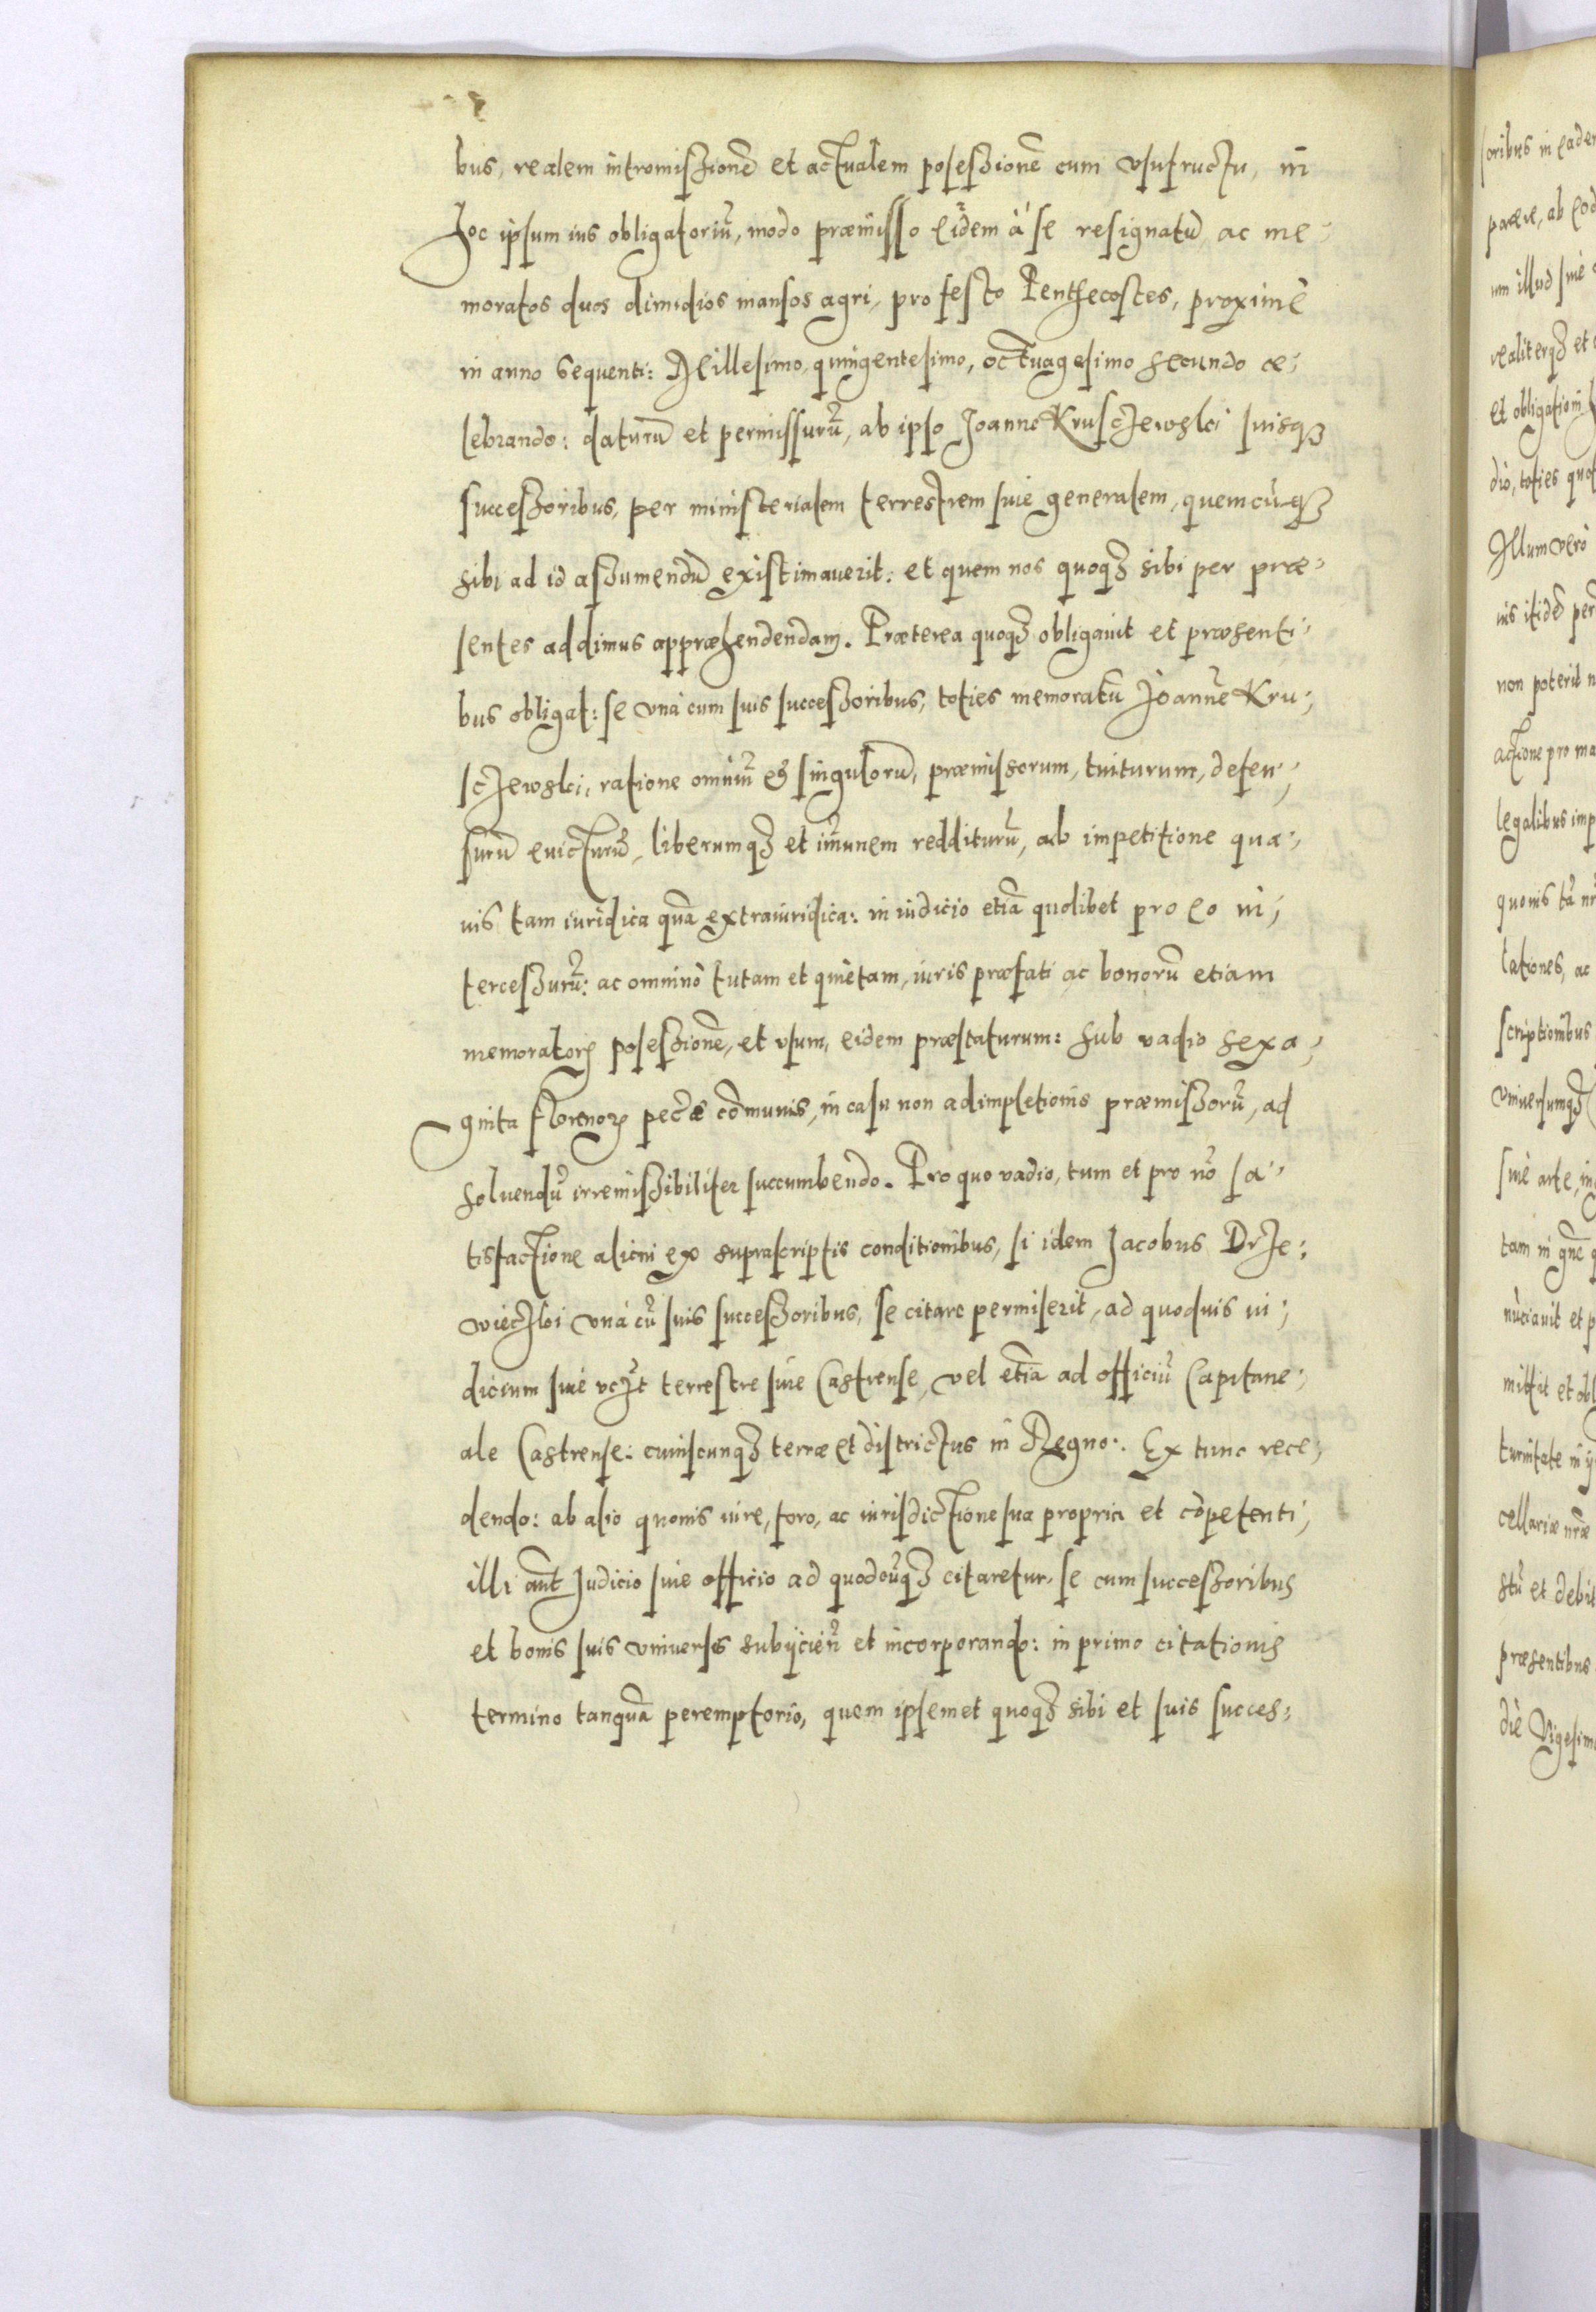 bus, realem intromissionẽ et actualem posessionẽ cum vsufructu, in
hoc ipsum ius obligatoriũ, modo præmisso eidem à se resignatũ, ac me-
moratos duos dimidios mansos agri, pro festo Penthecostes, proxime
in anno sequenti: Millesimo, quingentesimo, octuagesimo secundo ce-
lebrando: daturũ et permissurũ, ab ipso Joanne Kruschewski suisqꝫ
successoribus, per ministerialem terrestrem siue generalem, quemcũqꝫ
sibi ad id assumendũ existimauerit: et quem nos quoqꝫ sibi per præ-
sentes addimus appræhendendam. Præterea quoqꝫ obligauit et præsenti-
bus obligat: se vnà cum suis successoribus, toties memoratũ Joannẽ Kru-
schewski, ratione omniũ et singulorũ, præmissorum, tuiturum, defen-
surũ euicturũ, liberumqꝫ et im̃unem redditurũ, ab impetitione qua-
uis tam iuridica quã extraiuridica: in iudicio etiã quolibet pro eo in-
tercessurũ: ac omninò tutam et quietam, iuris præfati ac bonorũ etiam
memoratorꝝ posessionẽ, et vsum, eidem præstaturum: sub vadio sexa-
ginta florenorꝝ pecũæ cõmunis, in casu non adimpletionis præmissorũ, ad
soluendũ irremissibiliter succumbendo. Pro quo vadio, tum et pro nõ sa-
tisfactione alicui ex suprascriptis conditionibus, si idem Jacobus Drze-
wiecski vnà cũ suis successoribus, se citare permiserit, ad quoduis iu-
dicium siue terrestre siue Castrense, vel etiã ad officiũ Capitane-
ale Castrense: cuiuscunqꝫ terræ et districtus in Regno. Ex tunc rece-
dendo: ab alio quouis iure, foro, ac iurisdictione sua propria et cõpetenti,
illi aũt Judicio siue officio ad quodcũqꝫ citaretur, se cum successoribus
et bonis suis vniuersis subijcieñ et incorporando: in primo citationis
termino tanquã peremptorio, quem ipsemet quoqꝫ sibi et suis succes-